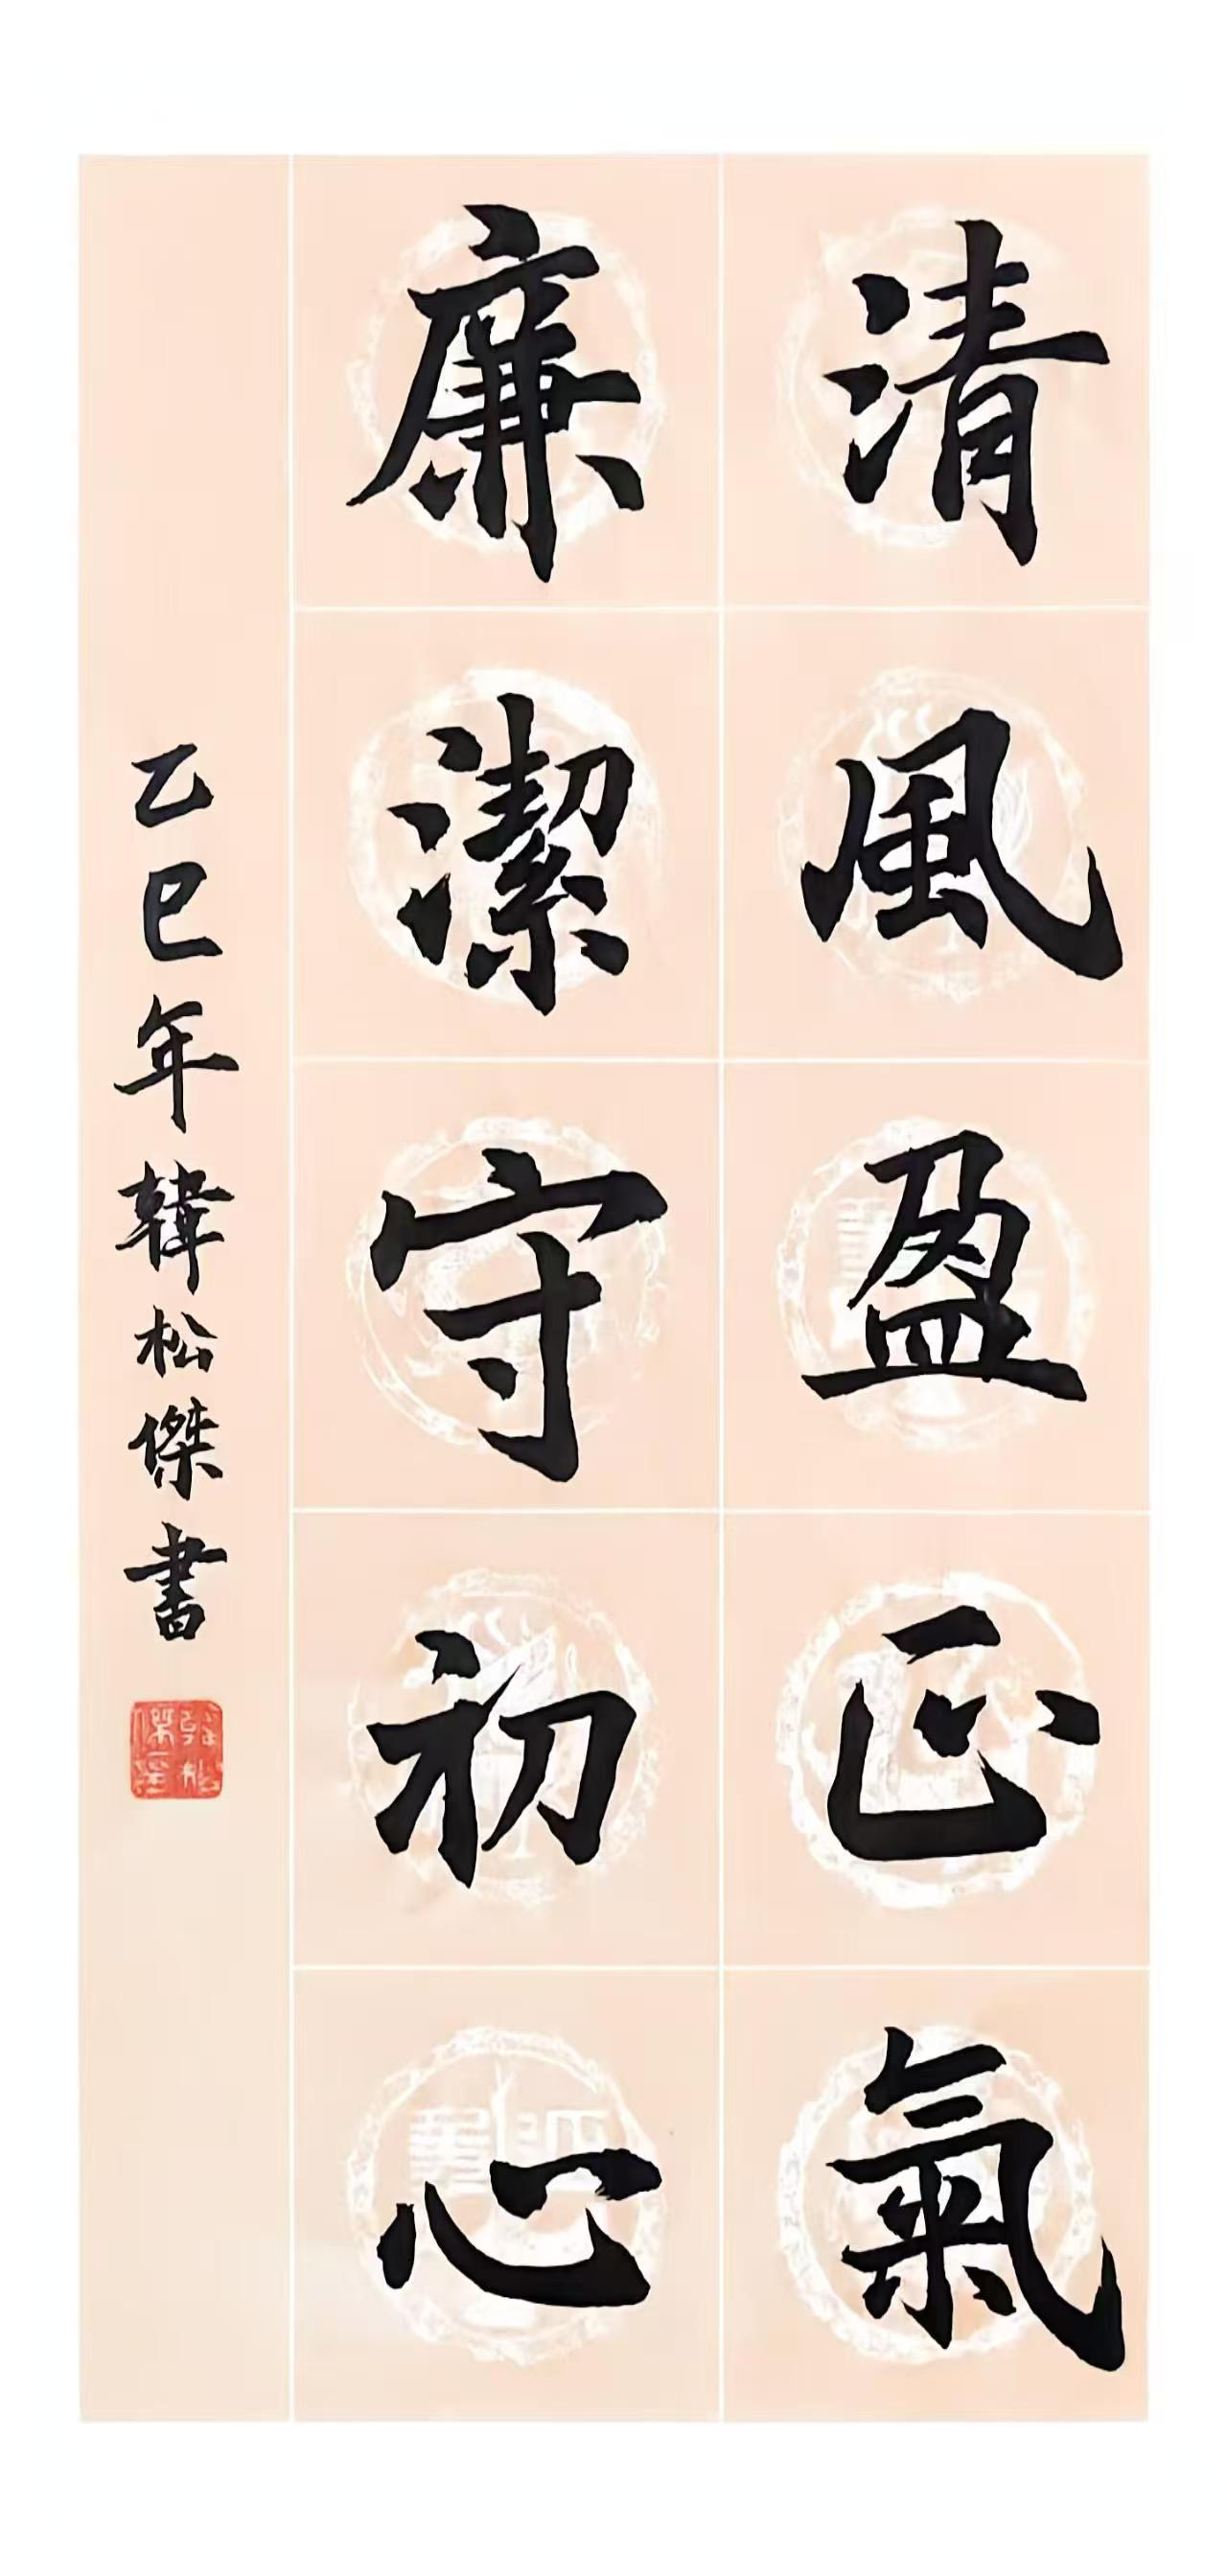 清風盈正氣
廉潔守初心
乙巳年韓松傑書